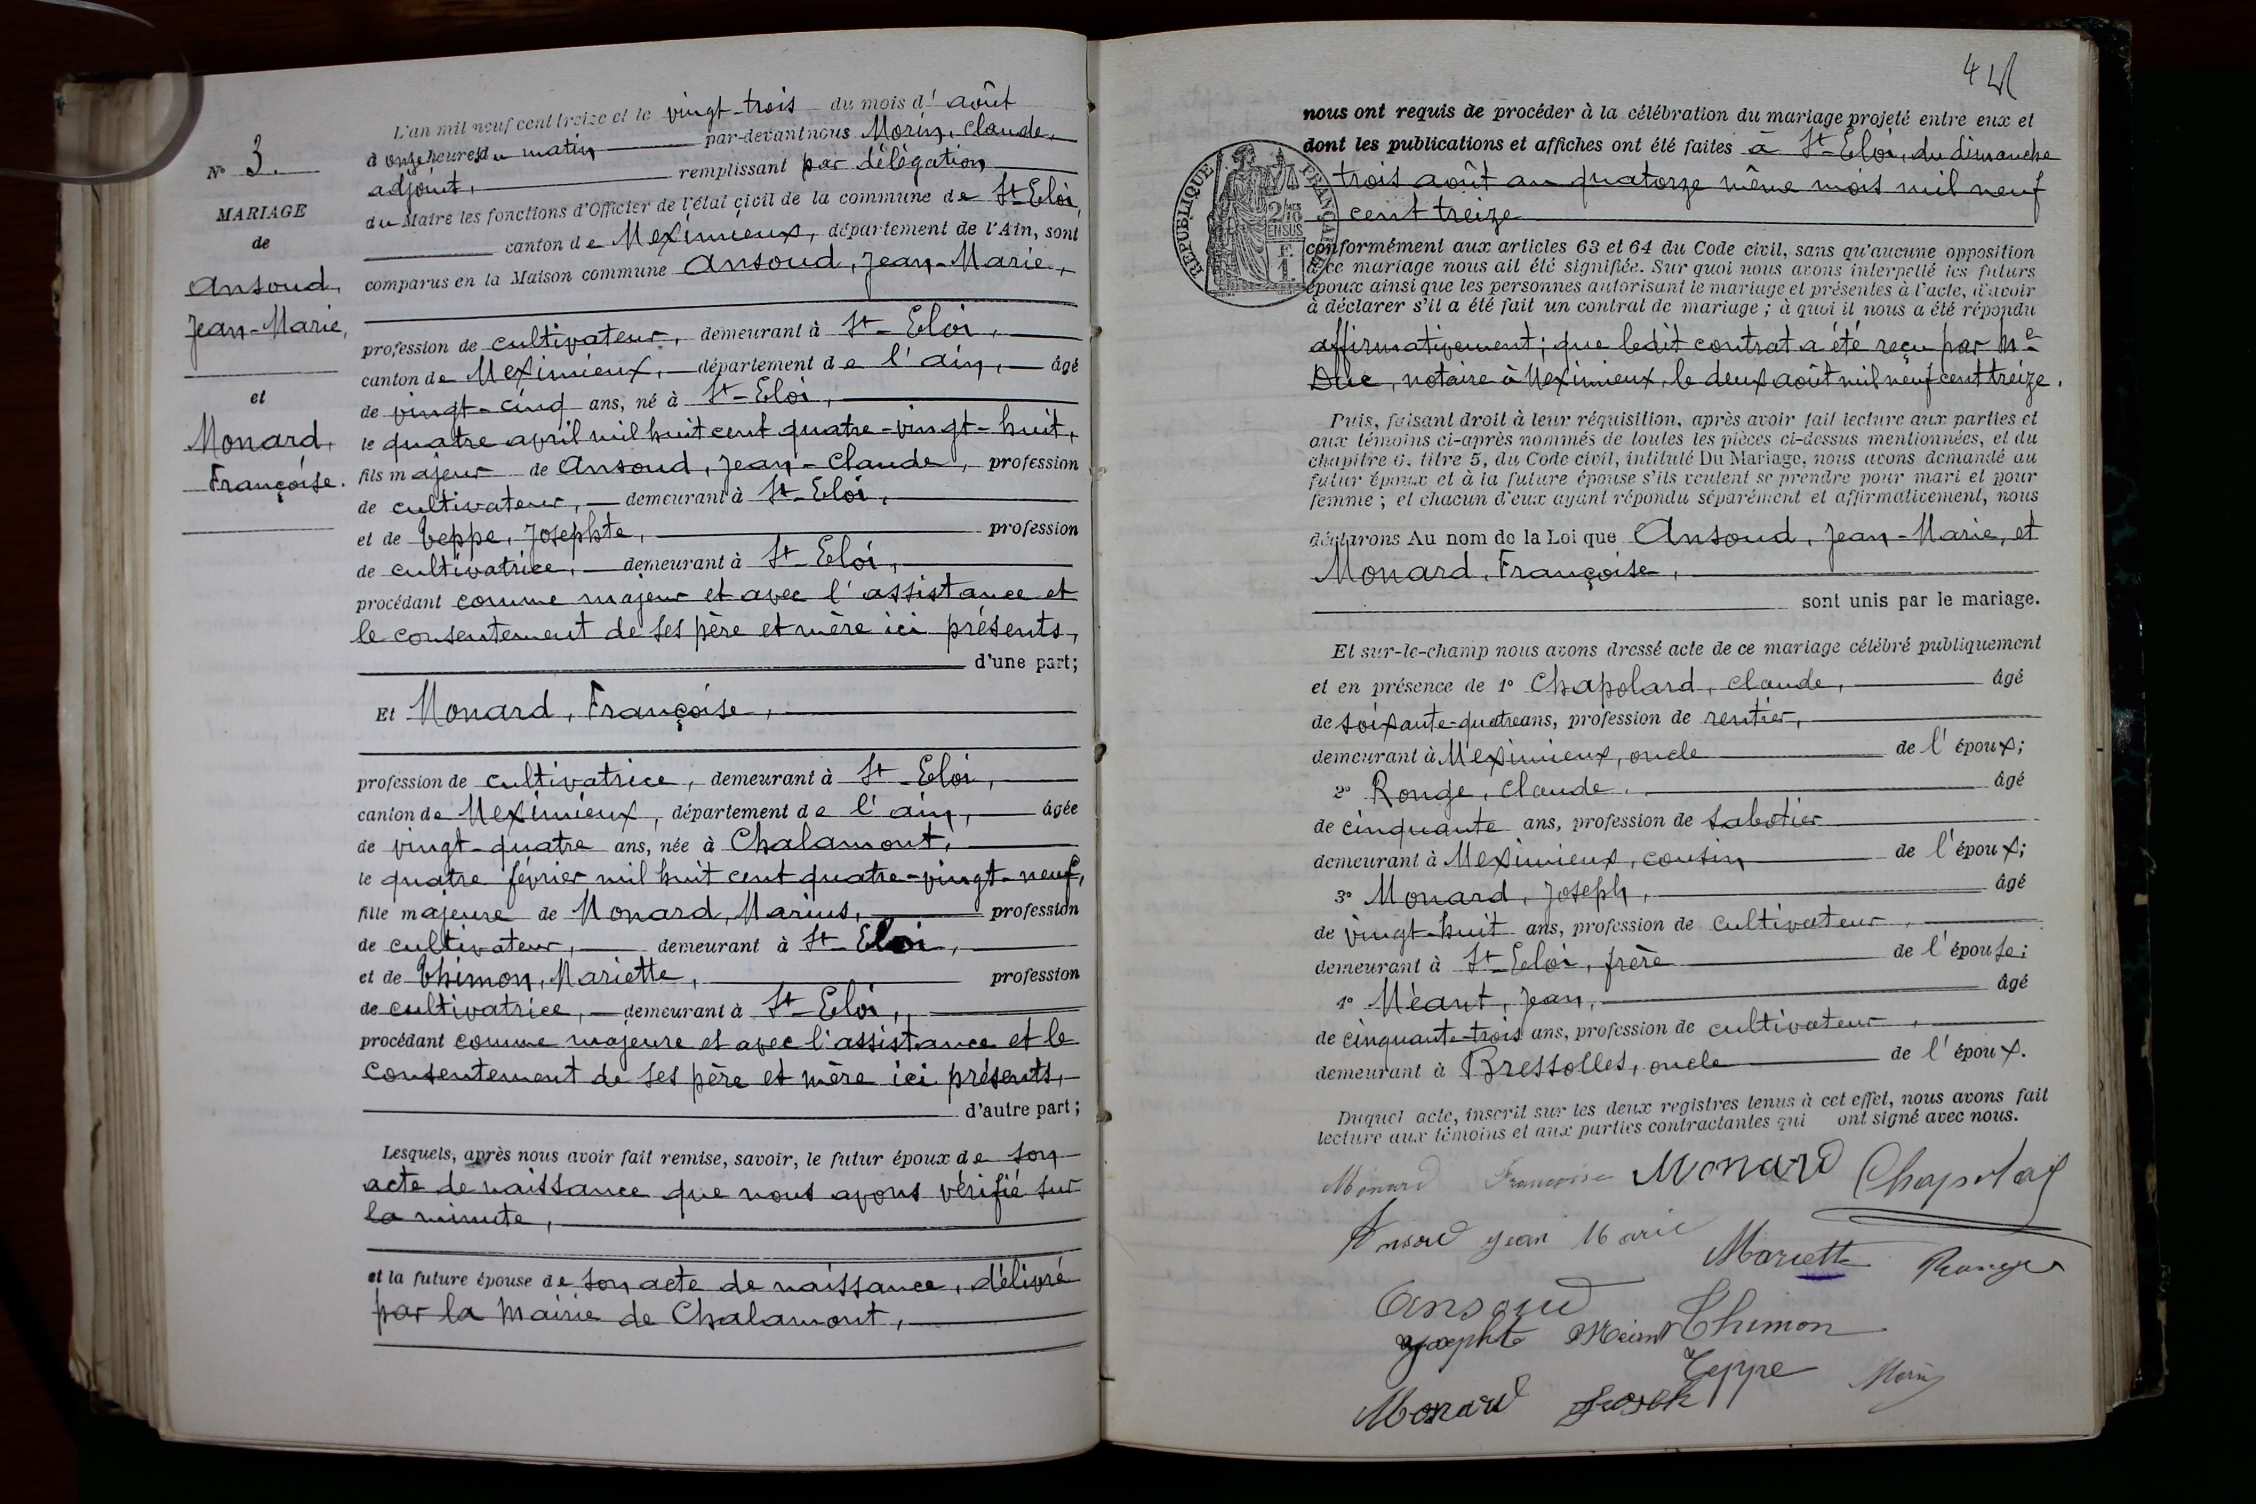 N° 3.
MARIAGE
de
Ansoud,
Jean-Marie,
et
Monard,
Françoise.
L'an mil neuf cent treize et le vingt-trois du mois d' août
à onze heures du matin par-devant nous Morin, Claude,
adjoint, remplissant par délégation
du Maire les fonctions d'Officier de l'état civil de la commune de St-Eloi,
canton de Meximieux, département de l'Ain, sont
comparus en la Maison commune Ansoud, Jean-Marie,
profession de cultivateur, demeurant à St-Eloi,
canton de Meximieux, département de l'ain, âgé
de vingt-cinq ans, né à St-Eloi,
le quatre avril mil huit cent quatre-vingt-huit,
fils majeur de Ansoud, Jean-Claude, profession
de cultivateur, demeurant à St-Eloi,
et de Teppe, Josephte, profession
de cultivatrice, demeurant à St-Eloi,
procédant comme majeur et avec l'assistance et
le consentement de ses père et mère ici présents,
d'une part;
Et Monard, Françoise,
profession de cultivatrice, demeurant à St-Eloi,
canton de Meximieux, département de l'ain, âgée
de vingt-quatre ans, née à Chalamont,
le quatre février mil huit cent quatre-vingt-neuf,
fille majeure de Monard, Marius, profession
de cultivateur, demeurant à St-Eloi,
et de Thimon, Mariette, profession
de cultivatrice, demeurant à St-Eloi,
procédant comme majeure et avec l'assistance et le
consentement de ses père et mère ici présents,
d'autre part;
Lesquels, après nous avoir fait remise, savoir, le futur époux de son
acte de naissance que nous avons vérifié sur
la minute,
et la future épouse de son acte de naissance, délivré
par la Mairie de Chalamont,
RÉPUBLIQUE FRANÇAISE
2/10 EN SUS
1 F.
nous ont requis de procéder à la célébration du mariage projeté entre eux et
dont les publications et affiches ont été faites à St-Eloi, du dimanche
trois août au quatorze même mois mil neuf
cent treize
conformément aux articles 63 et 64 du Code civil, sans qu'aucune opposition
à ce mariage nous ait été signifiée. Sur quoi nous avons interpellé les futurs
époux ainsi que les personnes autorisant le mariage et présentes à l'acte, d'avoir
à déclarer s'il a été fait un contrat de mariage; à quoi il nous a été répondu
affirmativement; que ledit contrat a été reçu par Me
Duc, notaire à Meximieux, le deux août mil neuf cent treize.
Puis, faisant droit à leur réquisition, après avoir fait lecture aux parties et
aux témoins ci-après nommés de toutes les pièces ci-dessus mentionnées, et du
chapitre 6, titre 5, du Code civil, intitulé Du Mariage, nous avons demandé au
futur époux et à la future épouse s'ils veulent se prendre pour mari et pour
femme; et chacun d'eux ayant répondu séparément et affirmativement, nous
déclarons Au nom de la Loi que Ansoud, Jean-Marie, et
Monard, Françoise,
sont unis par le mariage.
Et sur-le-champ nous avons dressé acte de ce mariage célébré publiquement
et en présence de 1° Chapolard, Claude, âgé
de soixante-quatre ans, profession de rentier,
demeurant à Meximieux, oncle de l'époux;
2° Ronge, Claude, âgé
de cinquante ans, profession de sabotier
demeurant à Meximieux, cousin de l'époux;
3° Monard, Joseph, âgé
de vingt-huit ans, profession de cultivateur,
demeurant à St-Eloi, frère de l'épouse;
4° Mèant, Jean, âgé
de cinquante-trois ans, profession de cultivateur,
demeurant à Bressolles, oncle de l'époux.
Duquel acte, inscrit sur les deux registres tenus à cet effet, nous avons fait
lecture aux témoins et aux parties contractantes qui ont signé avec nous.
Monard Françoise Monard Chapolard
Ansoud Jean Marie
Mariette Ronge
Ansoud
Josephte Méant Thimon
Teppe Morin
Monard Joseph